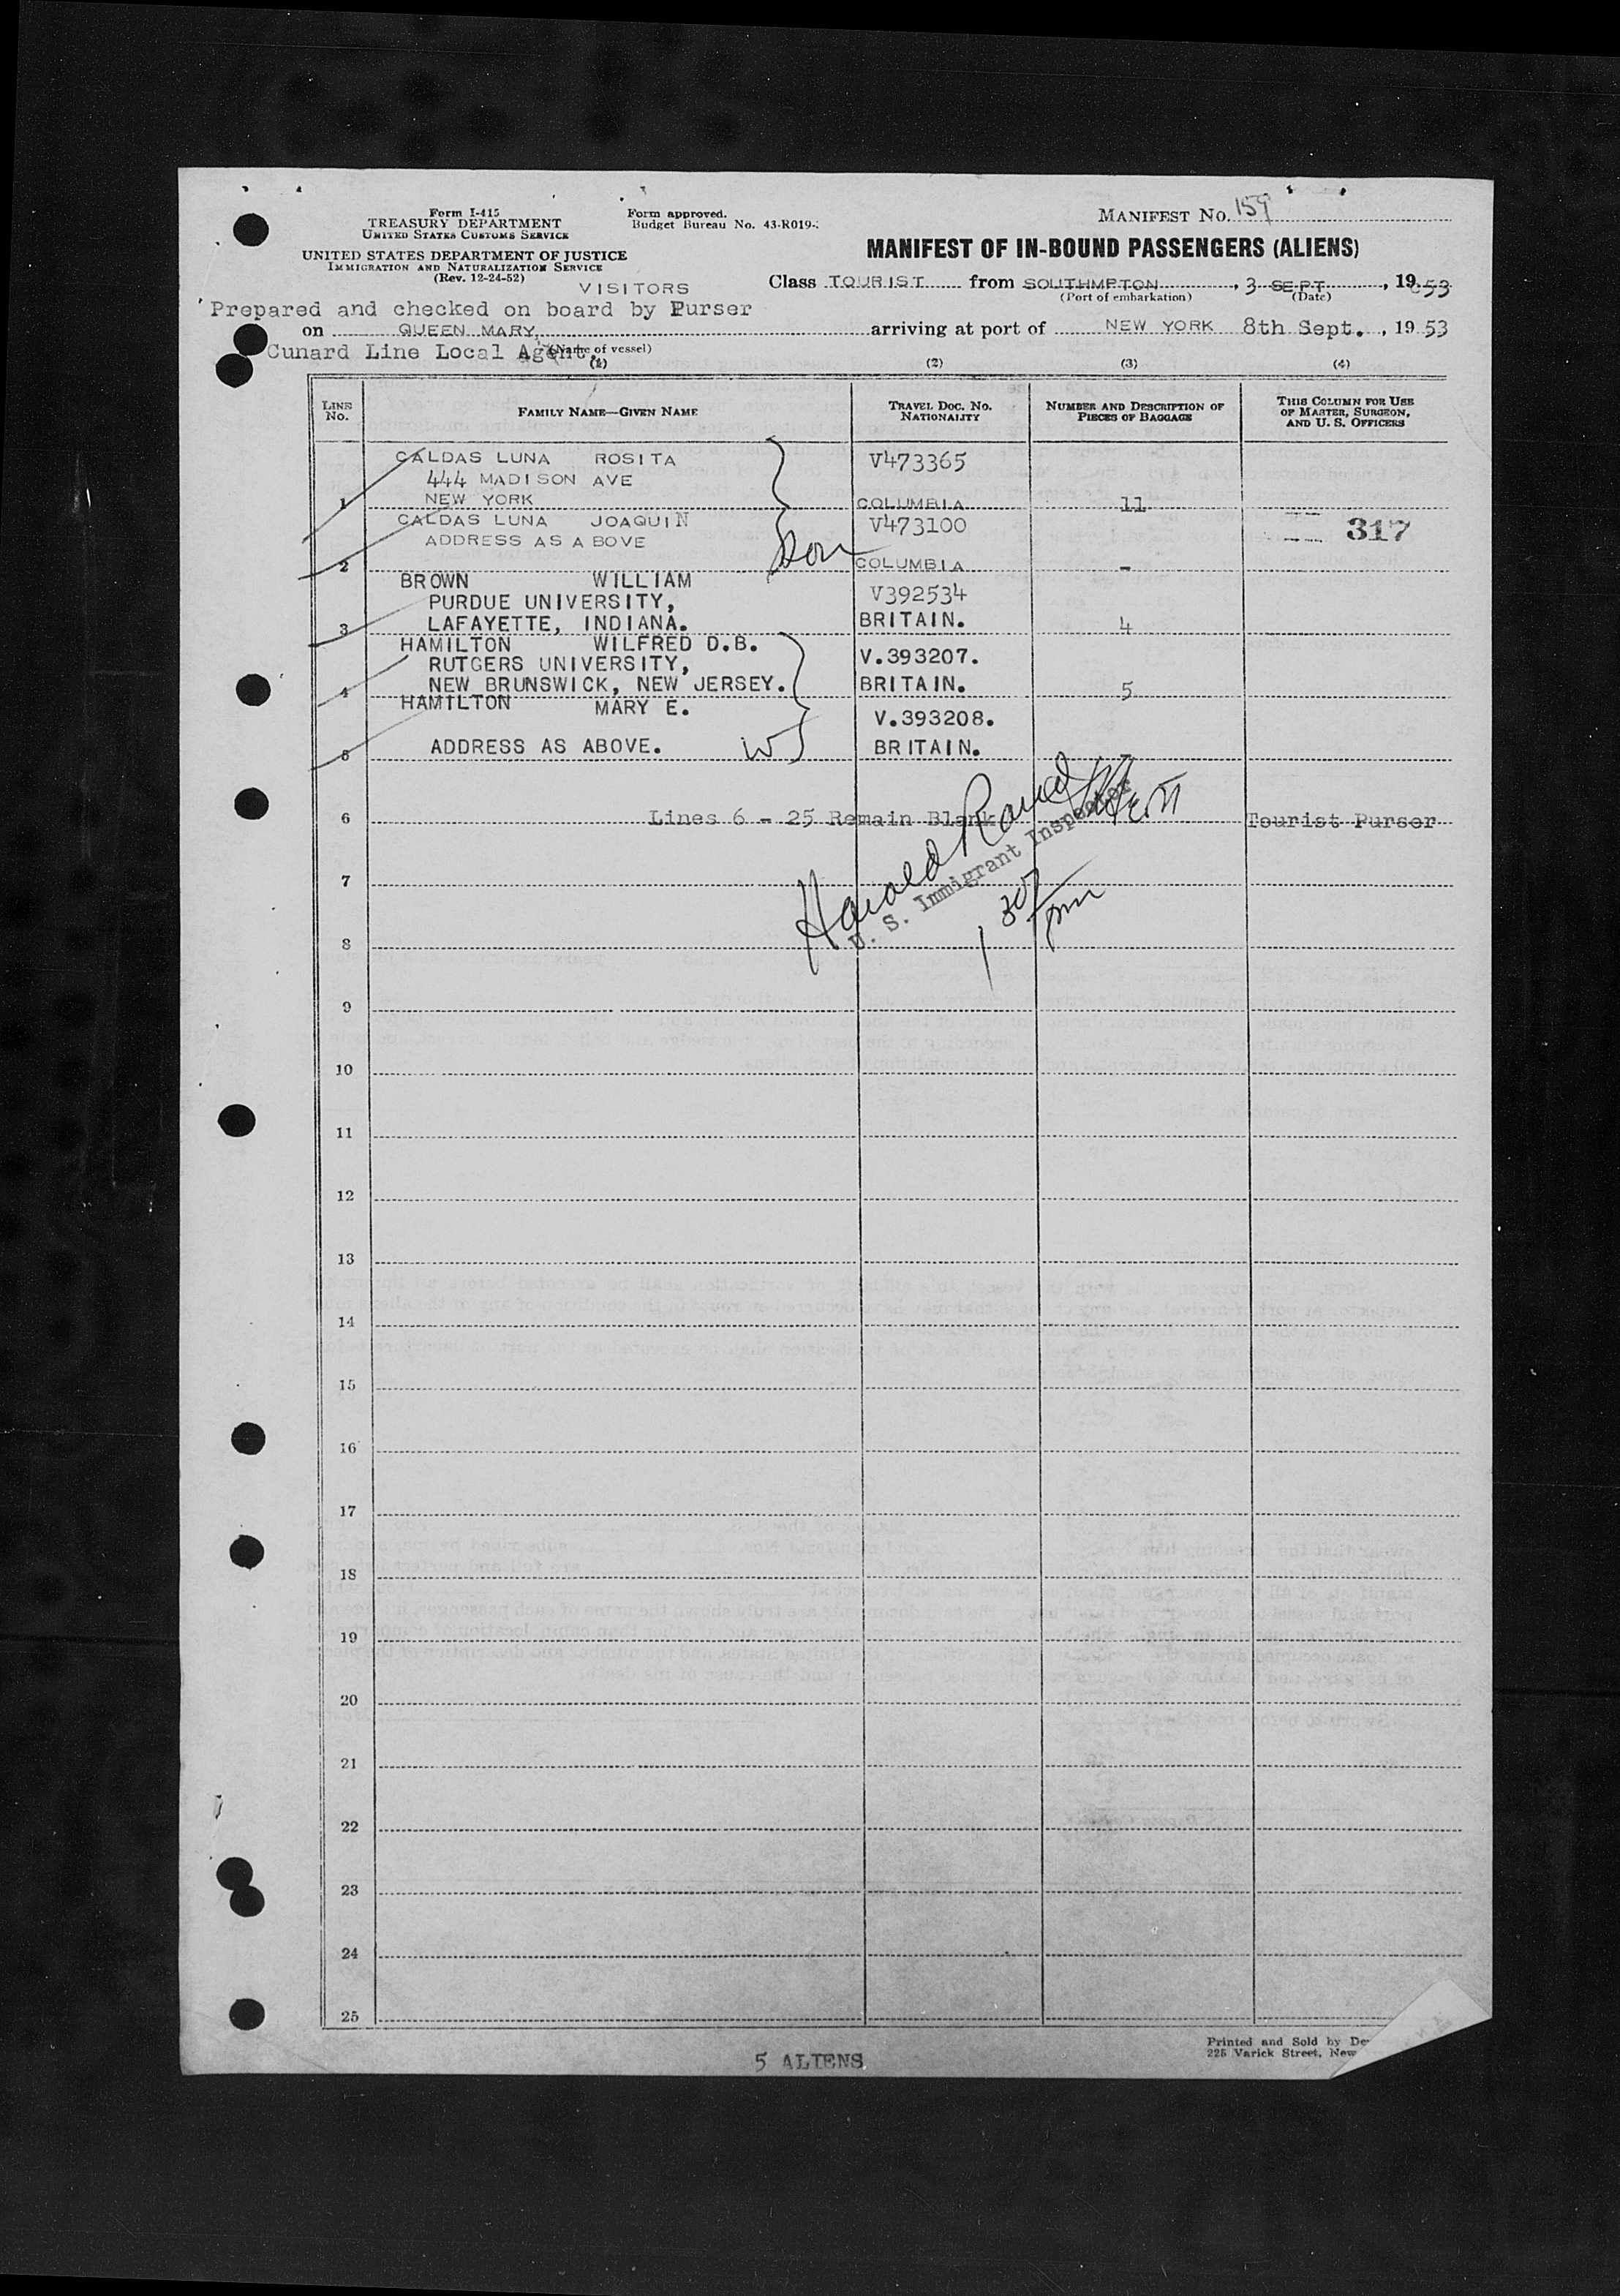 Form I-415
TREASURY DEPARTMENT
UNITED STATES CUSTOMS SERVICE
Form approved.
Budget Bureau No. 43-R019-
MANIFEST NO. 159
UNITED STATES DEPARTMENT OF JUSTICE
IMMIGRATION AND NATURALIZATION SERVICE
(Rev. 12-24-52)
MANIFEST OF IN-BOUND PASSENGERS (ALIENS)
VISITORS
Class TOURIST from SOUTHMPTON, 3 SEPT, 1953
(Port of embarkation) (Date)
Prepared and checked on board by Purser
on QUEEN MARY, arriving at port of NEW YORK 8th Sept., 1953
Cunard Line Local Agent.
(Name of vessel)
(1) (2) (3) (4)
LINE NO.
FAMILY NAME—GIVEN NAME
TRAVEL DOC. NO. NATIONALITY
NUMBER AND DESCRIPTION OF PIECES OF BAGGAGE
THIS COLUMN FOR USE OF MASTER, SURGEON, AND U. S. OFFICERS
CALDAS LUNA ROSITA V473365
444 MADISON AVE
1 NEW YORK COLUMBIA 11
CALDAS LUNA JOAQUIN V473100 317
ADDRESS AS ABOVE
2 Son COLUMBIA -
BROWN WILLIAM
PURDUE UNIVERSITY, V392534
3 LAFAYETTE, INDIANA. BRITAIN. 4
HAMILTON WILFRED D.B.
RUTGERS UNIVERSITY, V.393207.
4 NEW BRUNSWICK, NEW JERSEY. BRITAIN. 5
HAMILTON MARY E. V.393208.
5 ADDRESS AS ABOVE. W BRITAIN.
6 Lines 6 - 25 Remain Blank Tourist Purser
Harold
U. S. Immigrant Inspector
1 30 pm
7
8
9
10
11
12
13
14
15
16
17
18
19
20
21
22
23
24
25
5 ALIENS
Printed and Sold by
225 Varick Street, New